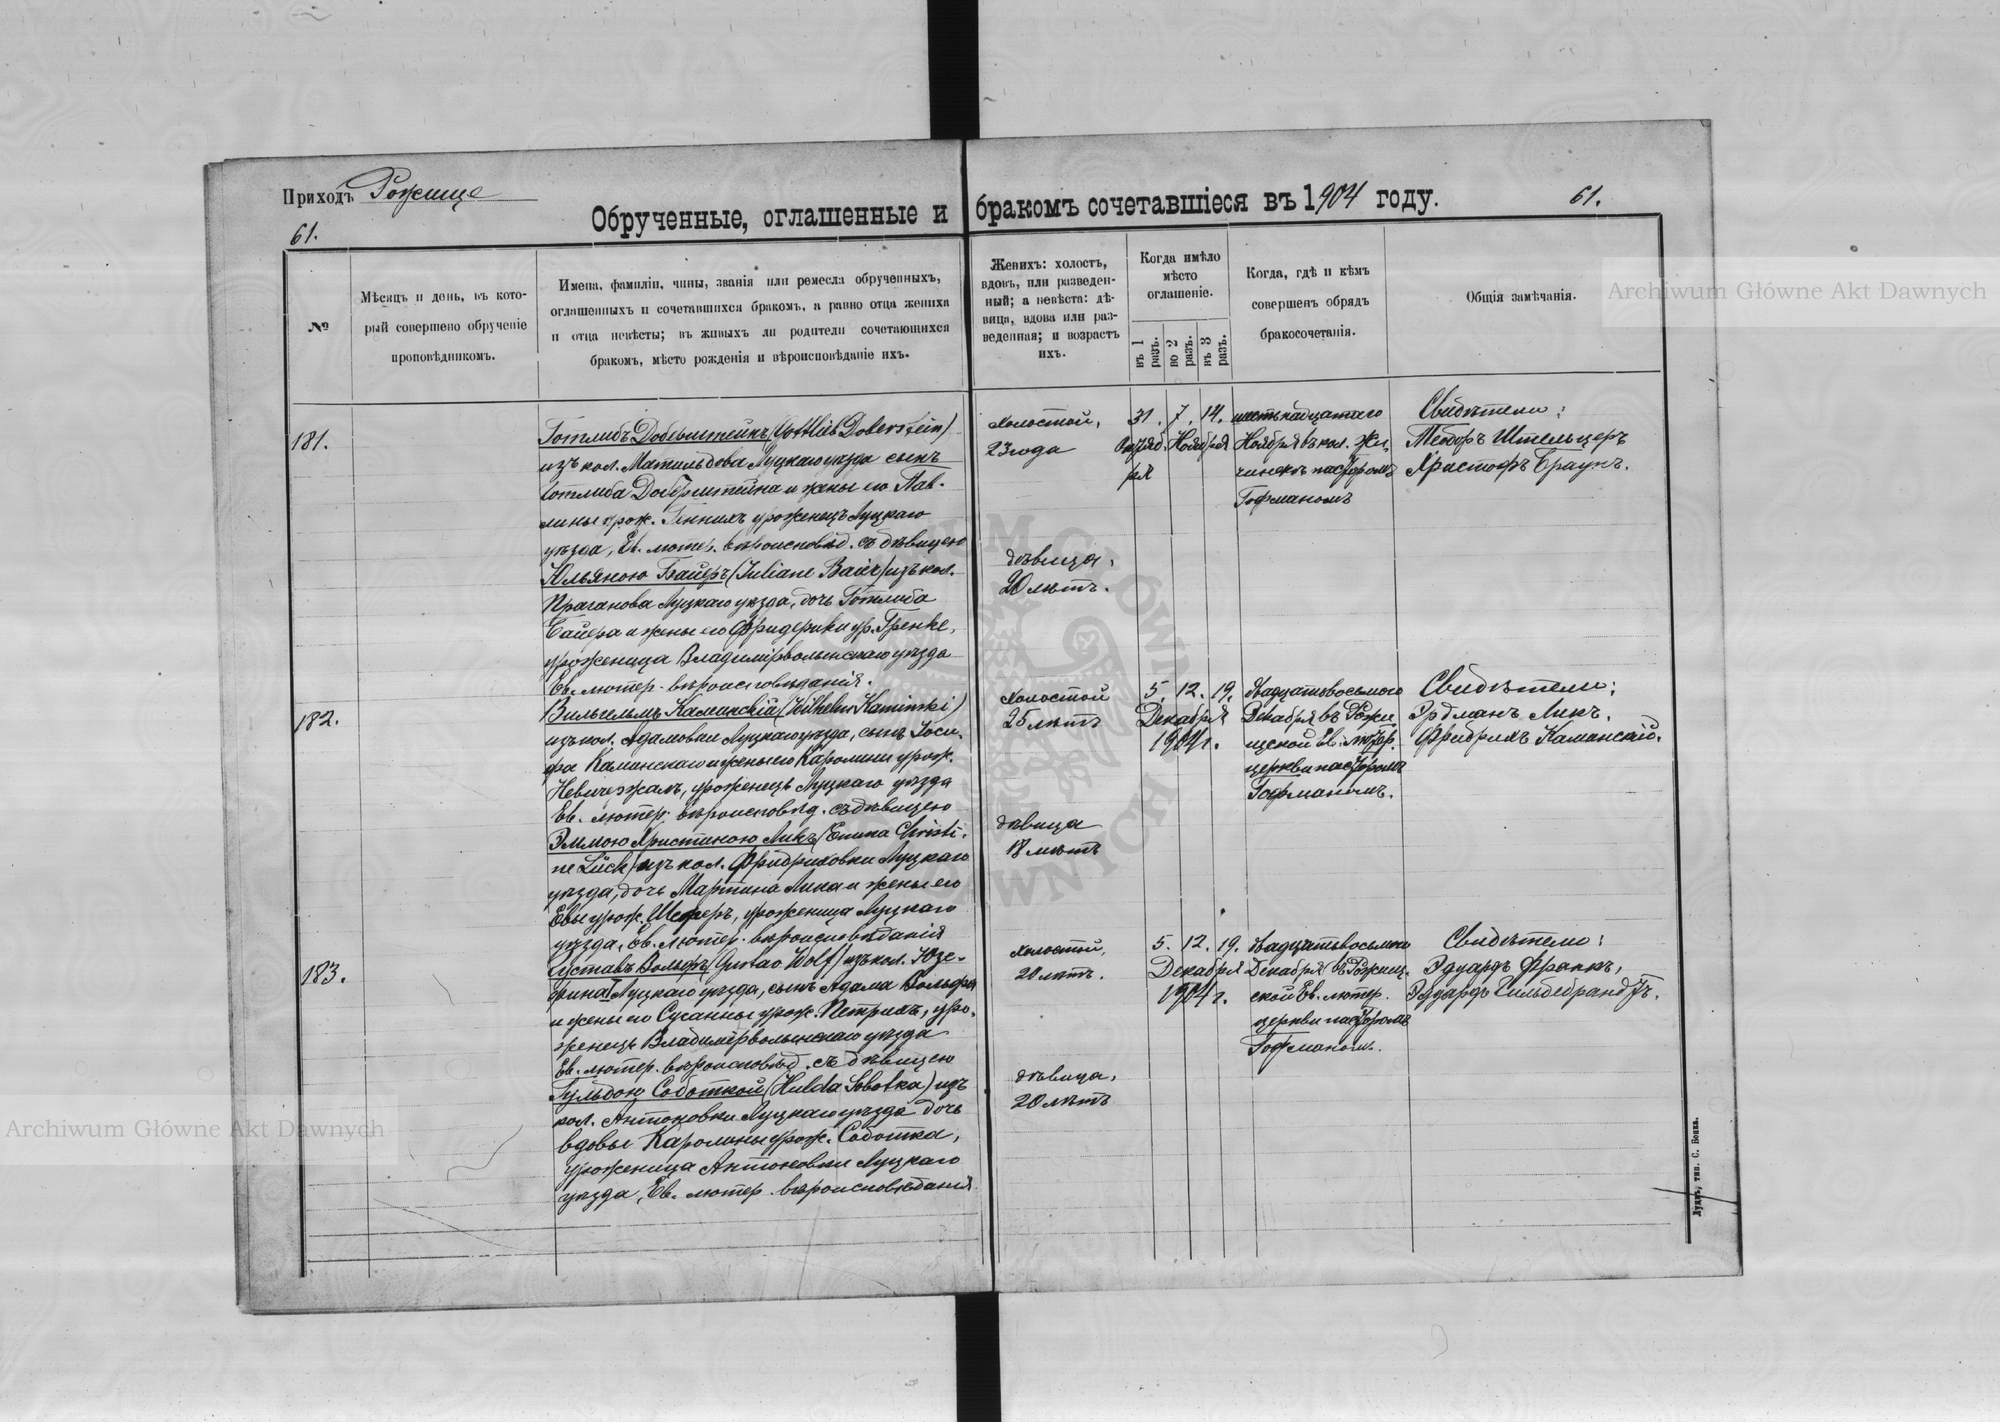 Приходъ Рожище
Обрученные, оглашенные и бракомъ сочетавшіеся въ 1904 году.
61.
61.
№
Мѣсяцъ и день, въ кото-
рый совершено обрученіе
проповѣдникомъ.
Имена, фамиліи, чины, званія или ремесла обрученныхъ,
оглашенныхъ и сочетавшихся бракомъ, а равно отца жениха
и отца невѣсты; въ живыхъ ли родители сочетающихся
бракомъ, мѣсто рожденія и вѣроисповѣданіе ихъ.
Женихъ: холостъ,
вдовъ, или разведен-
ный; а невѣста: дѣ-
вица, вдова или раз-
веденная; и возрастъ
ихъ.
Когда имѣло
мѣсто
оглашеніе.
въ 1 разъ.
во 2 разъ.
въ 3 разъ.
Когда, гдѣ и кѣмъ
совершенъ обрядъ
бракосочетанія.
Общія замѣчанія.
181.
Готлибъ Доберштейнъ (Gottlieb Doberstein)
изъ кол. Матильдова Луцкаго уѣзда сынъ
Готлиба Доберштейна и жены его Пав-
лины урож. Геннихъ уроженецъ Луцкаго
уѣзда, Ев. лютер. вѣроисповѣд. съ дѣвицею
Юльяною Байеръ (Juliane Baier) изъ кол.
Луцкаго уѣзда, дочь Готлиба
Байера и жены его Фридерики ур. Гренке,
уроженица Владимірволынскаго уѣзда
Ев. лютер. вѣроисповѣданія.
холостой,
23 года
дѣвица,
20 лѣтъ.
31. 7. 14.
Октяб. Ноября
ря
шестьнадцатаго
Ноября въ кол. Жи
пасторомъ
Гофманомъ
Свидѣтели:
Теодоръ Штельцеръ
Христофъ Браунъ.
182.
Вильгельмъ Каминскій (Wilhelm Kaminski)
изъ кол. Адамовки Луцкаго уѣзда, сынъ Іоси-
фа Каминскаго и жены его Каролины урож.
уроженецъ Луцкаго уѣзда
Ев. лютер. вѣроисповѣд. съ дѣвицею
Эммою Христиною Ликъ (Emma Christi-
ne Lück) изъ кол. Фридриховки Луцкаго
уѣзда, дочь Мартина Лика и жены его
Евы урож. Шеферъ, уроженица Луцкаго
уѣзда, Ев. лютер. вѣроисповѣданія
холостой
25 лѣтъ
дѣвица
18 лѣтъ
5. 12. 19.
Декабря
1904 г.
двадцатьвосьмого
Декабря въ Рожи
щской Ев. лютер.
церкви пасторомъ
Гофманомъ.
Свидѣтели:
Эрдманъ Ликъ,
Фридрихъ Каминскій.
183.
Густавъ Вольфъ (Gustav Wolf) изъ кол. Юзе-
фина Луцкаго уѣзда, сынъ Адама Вольфа
и жены его Сусанны урож. Петрихъ, уро-
женецъ Владимірволынскаго уѣзда
Ев. лютер. вѣроисповѣд. съ дѣвицею
Гульдою Соботкой (Hulda Sobotka) изъ
кол. Антоновки Луцкаго уѣзда дочь
вдовы Каролины урож. Соботка,
уроженица Антоновки Луцкаго
уѣзда, Ев. лютер. вѣроисповѣданія
холостой,
20 лѣтъ.
дѣвица,
20 лѣтъ
5. 12. 19.
Декабря
1904 г.
двадцатьвосьмого
Декабря въ Рожищ-
ской Ев. лютер.
церкви пасторомъ
Гофманомъ.
Свидѣтели:
Эдуардъ Франкъ,
Эдуардъ Гильдебрандтъ.
Луцкъ, тип. С. Бонка.
Archiwum Główne Akt Dawnych
Archiwum Główne Akt Dawnych